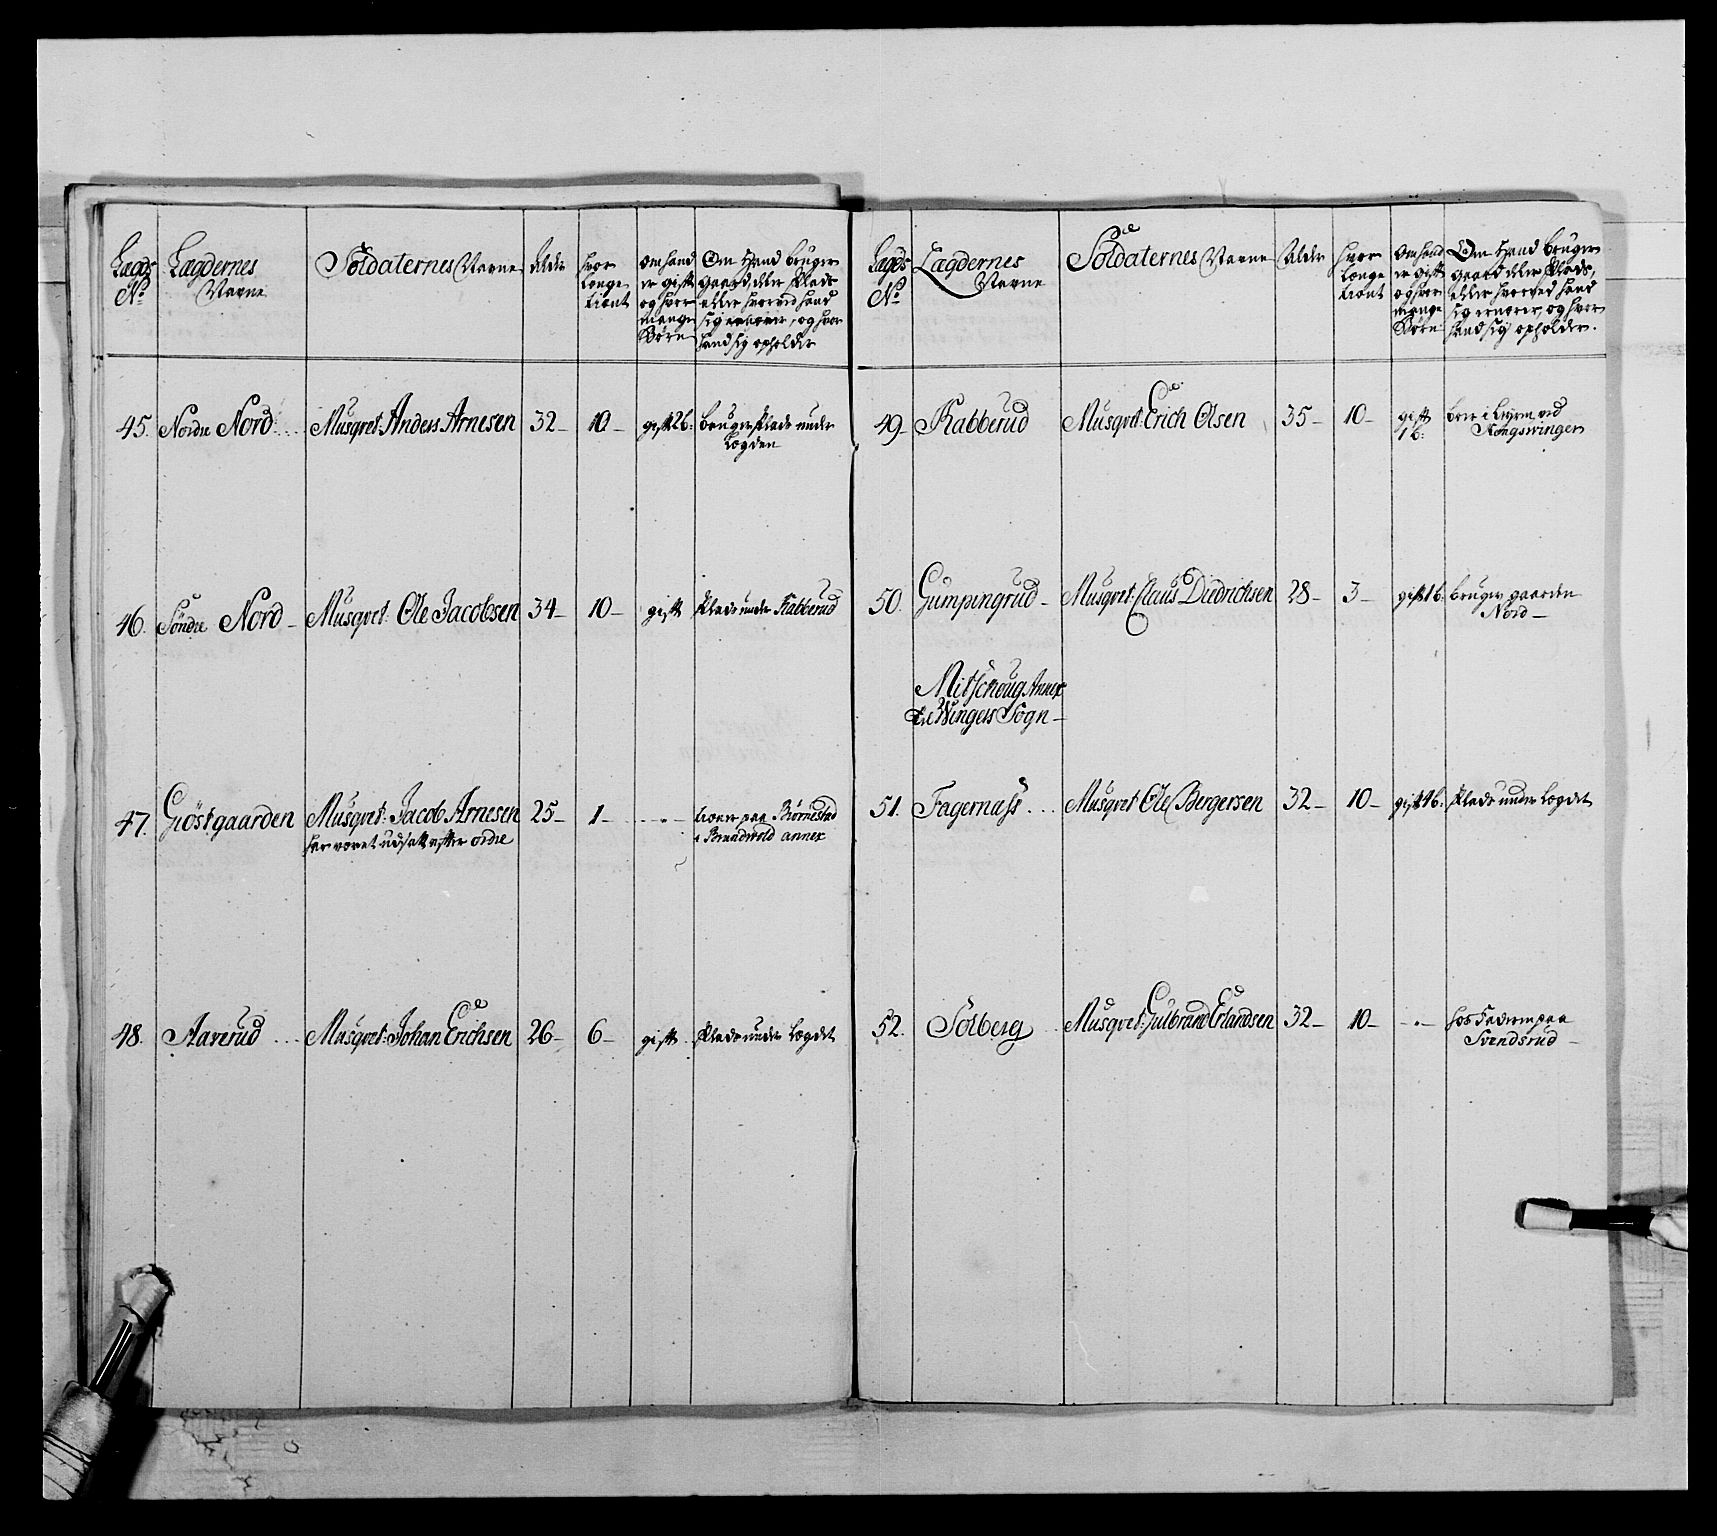 Lægds No
Lægdernes Navne
Soldaternes Navne
Alder
hvor længe tient
om hand er gift og hvor mange Børn
Om Hand bruger gaard eller Plads eller hvorved hand sig ernærer, og hvor hand sig opholder
45. Nordre Nord ... Musqvet: Anders Arnesen 32 – 10 – gift 2 b: bruger Plads under
Lægden
46. Søndre Nord – Musqvet: Ole Jacobsen 34 – 10 – gift Plads under Rabberud
47. Giöstgaarden Musqvet: Jacob Arnesen 25 – 1 - tiener paa Biørnestad
har været udsatt efter ordre i Brandwold annex
48. Aarerud ... Musqvet: Johan Erichsen 26 – 6 – gift. Plads under Lægdet
Lægds No
Lægdernes Navne
Soldaternes Navne
Alder
hvor længe tient
Om hand er gift og hvor mange Børn
Om Hand bruger gaard eller Plads, eller hvorved hand sig ernærer, og hvor hand sig opholder.
49. Rabberud Musqvet: Erich Olsen 35 – 10 – gift 1 b: boer i Leyren ved
Kongswinger
50. Gumpingrud – Musqvet: Claus Diedrichsen 28 – 3 – gift 1 b: bruger gaarden
Nord –
Mitschoug Annex
til Wingers Sogn –
51. Fagernæss ... Musqvet Ole Bergersen 32 – 10 – gift 4 b: Plads under Lægdet
52. Solberg . Musqvet: Gulbrand Erlandsen 32 – 10 – - . - hos Faderen paa
Svendsrud –